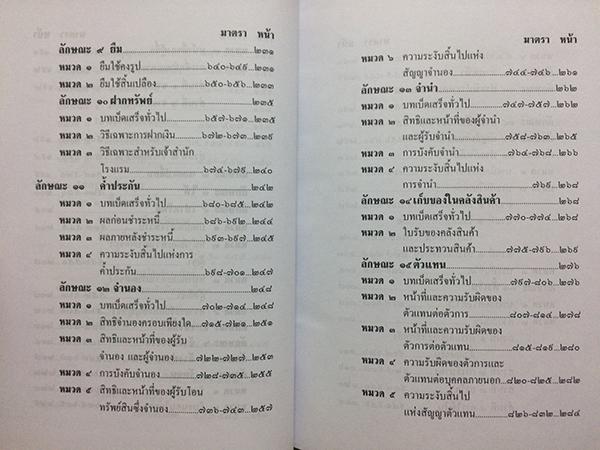 มาตรา หน้า
ลักษณะ ๙ ยืม.....๒๓๑
หมวด ๑ ยืมใช้คงรูป.....๖๔๐-๖๔๙...๒๓๑
หมวด ๒ ยืมใช้สิ้นเปลือง.....๖๕๐-๖๕๖...๒๓๓
ลักษณะ ๑๐ ฝากทรัพย์.....๒๓๕
หมวด ๑ บทเบ็ดเสร็จทั่วไป.....๖๕๗-๖๗๑...๒๓๕
หมวด ๒ วิธีเฉพาะการฝากเงิน.....๖๗๒-๖๗๓...๒๓๙
หมวด ๓ วิธีเฉพาะสำหรับเจ้าสำนัก
โรงแรม.....๖๗๔-๖๗๙...๒๔๐
ลักษณะ ๑๑ ค้ำประกัน.....๒๔๒
หมวด ๑ บทเบ็ดเสร็จทั่วไป.....๖๘๐-๖๘๕...๒๔๒
หมวด ๒ ผลก่อนชำระหนี้.....๖๘๖-๖๙๒...๒๔๔
หมวด ๓ ผลภายหลังชำระหนี้.....๖๙๓-๖๙๗...๒๔๕
หมวด ๔ ความระงับสิ้นไปแห่งการ
ค้ำประกัน.....๖๙๘-๗๐๑...๒๔๗
ลักษณะ ๑๒ จำนอง.....๒๔๘
หมวด ๑ บทเบ็ดเสร็จทั่วไป.....๗๐๒-๗๑๔...๒๔๘
หมวด ๒ สิทธิจำนองครอบเพียงใด.....๗๑๕-๗๒๑...๒๕๑
หมวด ๓ สิทธิและหน้าที่ของผู้รับ
จำนอง และผู้จำนอง.....๗๒๒-๗๒๗...๒๕๓
หมวด ๔ การบังคับจำนอง.....๗๒๘-๗๓๕...๒๕๕
หมวด ๕ สิทธิและหน้าที่ของผู้รับโอน
ทรัพย์สินซึ่งจำนอง.....๗๓๖-๗๔๓...๒๕๗
มาตรา หน้า
หมวด ๖ ความระงับสิ้นไปแห่ง
สัญญาจำนอง.....๗๔๔-๗๔๖...๒๖๑
ลักษณะ ๑๓ จำนำ.....๒๖๒
หมวด ๑ บทเบ็ดเสร็จทั่วไป.....๗๔๗-๗๕๗...๒๖๒
หมวด ๒ สิทธิและหน้าที่ของผู้จำนำ
และผู้รับจำนำ.....๗๕๘-๗๖๓...๒๖๕
หมวด ๓ การบังคับจำนำ.....๗๖๔-๗๖๘...๒๖๖
หมวด ๔ ความระงับสิ้นไปแห่ง
การจำนำ.....๗๖๙...๒๖๘
ลักษณะ ๑๔ เก็บของในคลังสินค้า.....๒๖๘
หมวด ๑ บทเบ็ดเสร็จทั่วไป.....๗๗๐-๗๗๔...๒๖๘
หมวด ๒ ใบรับของคลังสินค้า
และประทวนสินค้า.....๗๗๕-๗๙๖...๒๖๙
ลักษณะ ๑๕ ตัวแทน.....๒๗๖
หมวด ๑ บทเบ็ดเสร็จทั่วไป.....๗๙๗-๘๐๖...๒๗๖
หมวด ๒ หน้าที่และความรับผิดของ
ตัวแทนต่อตัวการ.....๘๐๗-๘๑๔...๒๗๘
หมวด ๓ หน้าที่และความรับผิดของ
ตัวการต่อตัวแทน.....๘๑๕-๘๑๙...๒๘๐
หมวด ๔ ความรับผิดของตัวการและ
ตัวแทนต่อบุคคลภายนอก...๘๒๐-๘๒๕...๒๘๒
หมวด ๕ ความระงับสิ้นไป
แห่งสัญญาตัวแทน.....๘๒๖-๘๓๒...๒๘๔